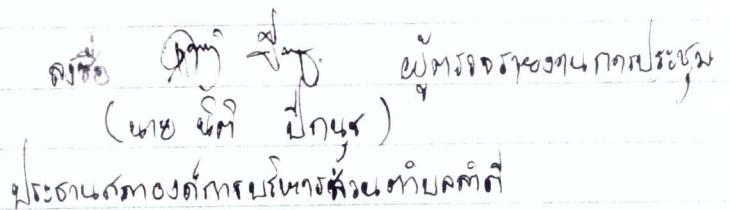 ลงชื่อ ผู้ตรวจรายงานการประชุม
(นาย นิติ ปีกนุช)
ประธานสภาองค์การบริหารส่วนตำบลลำดี